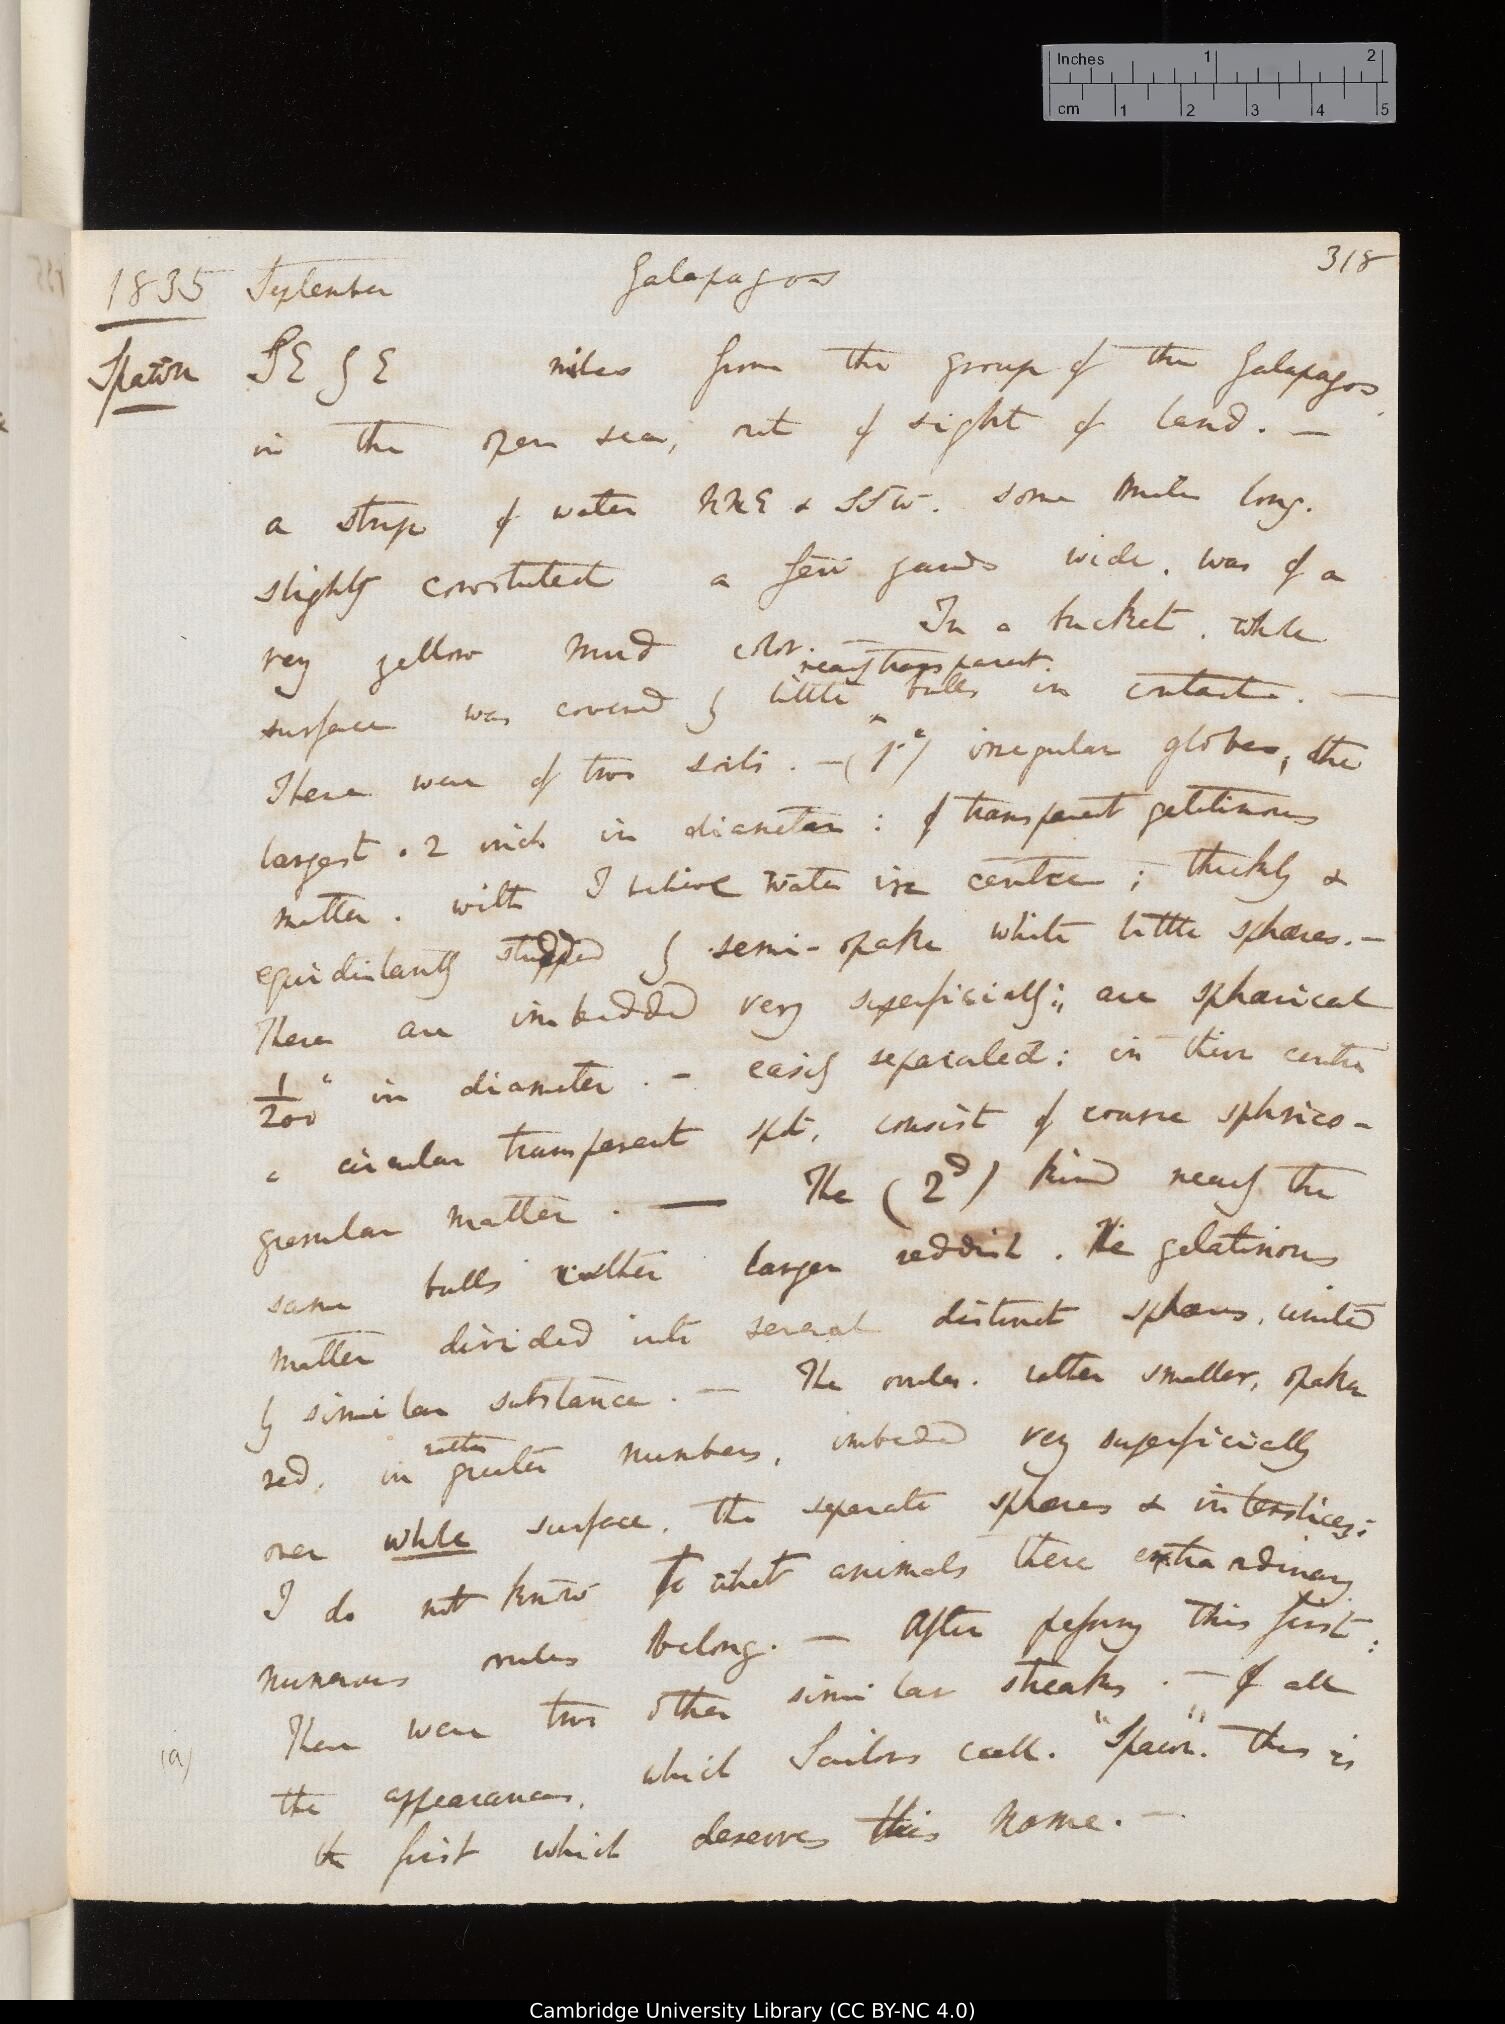 Inches 1 2
cm 1 2 3 4 5
318
1835 September Galapagos
Spawn SE by E miles from the group of the Galapagos,
in the open sea, out of sight of land. —
a strip of water NNE & SSW. some miles long.
slightly a few yards wide, was of a
very yellow mud color. — In a bucket, whole
nearly transparent.
surface was covered by little ^ balls in contact. —
These were of two sorts. — (1st) irregular globes, the
largest .2 inch in diameter: of transparent gelatinous
matter. with I believe water in centre; thickly &
equidistantly studded by semi-opake white little sphæres. —
These are imbedded very superficially; are sphærical
1/200" in diameter. — easily separated: in their centre
a circular transparent spot, consist of coarse spherico-
granular matter. — The (2d) kind nearly the
same balls rather larger reddish. The gelatinous
matter divided into several distinct sphæres, united
by similar substance. — The ovules. rather smaller, opake
rather
red, in greater numbers, imbeded very superficially
over whole surface, the separate sphæres & interstices;
I do not know to what animals these extraordinary
numerous ovules belong. — After passing this first:
There were two other similar streaks. — Of all
(a) the appearances, which Sailors call. "Spawn". this is
the first which deserves this name. —
Cambridge University Library (CC BY-NC 4.0)